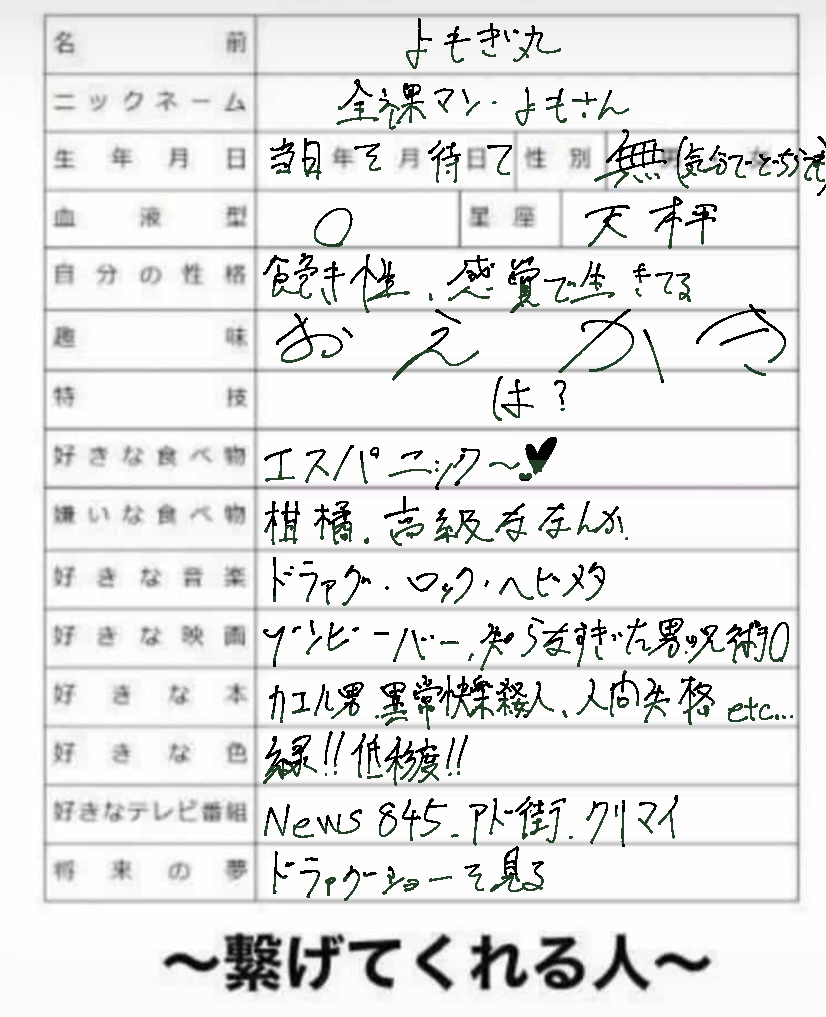 名前 よもぎ丸
ニックネーム 全裸マン・よもさん
生年月日 当日年を月待日て 性別 無(気分でどちらも
血液型 O 星座 天秤
自分の性格 飽き性、感覚で生きてる
趣味 おえかき
特技 は?
好きな食べ物 エスパニック〜♥
嫌いな食べ物 柑橘、高級ななんか
好きな音楽 ドラァグ・ロック・ヘビメタ
好きな映画 ゾンビーバー、知らなすぎた男、呪術0
好きな本 カエル男 異常快楽殺人、人間失格 etc...
好きな色 緑!!低彩度!!
好きなテレビ番組 News 845、アド街、クリマイ
将来の夢 ドラァグショーを見る
〜繋げてくれる人〜